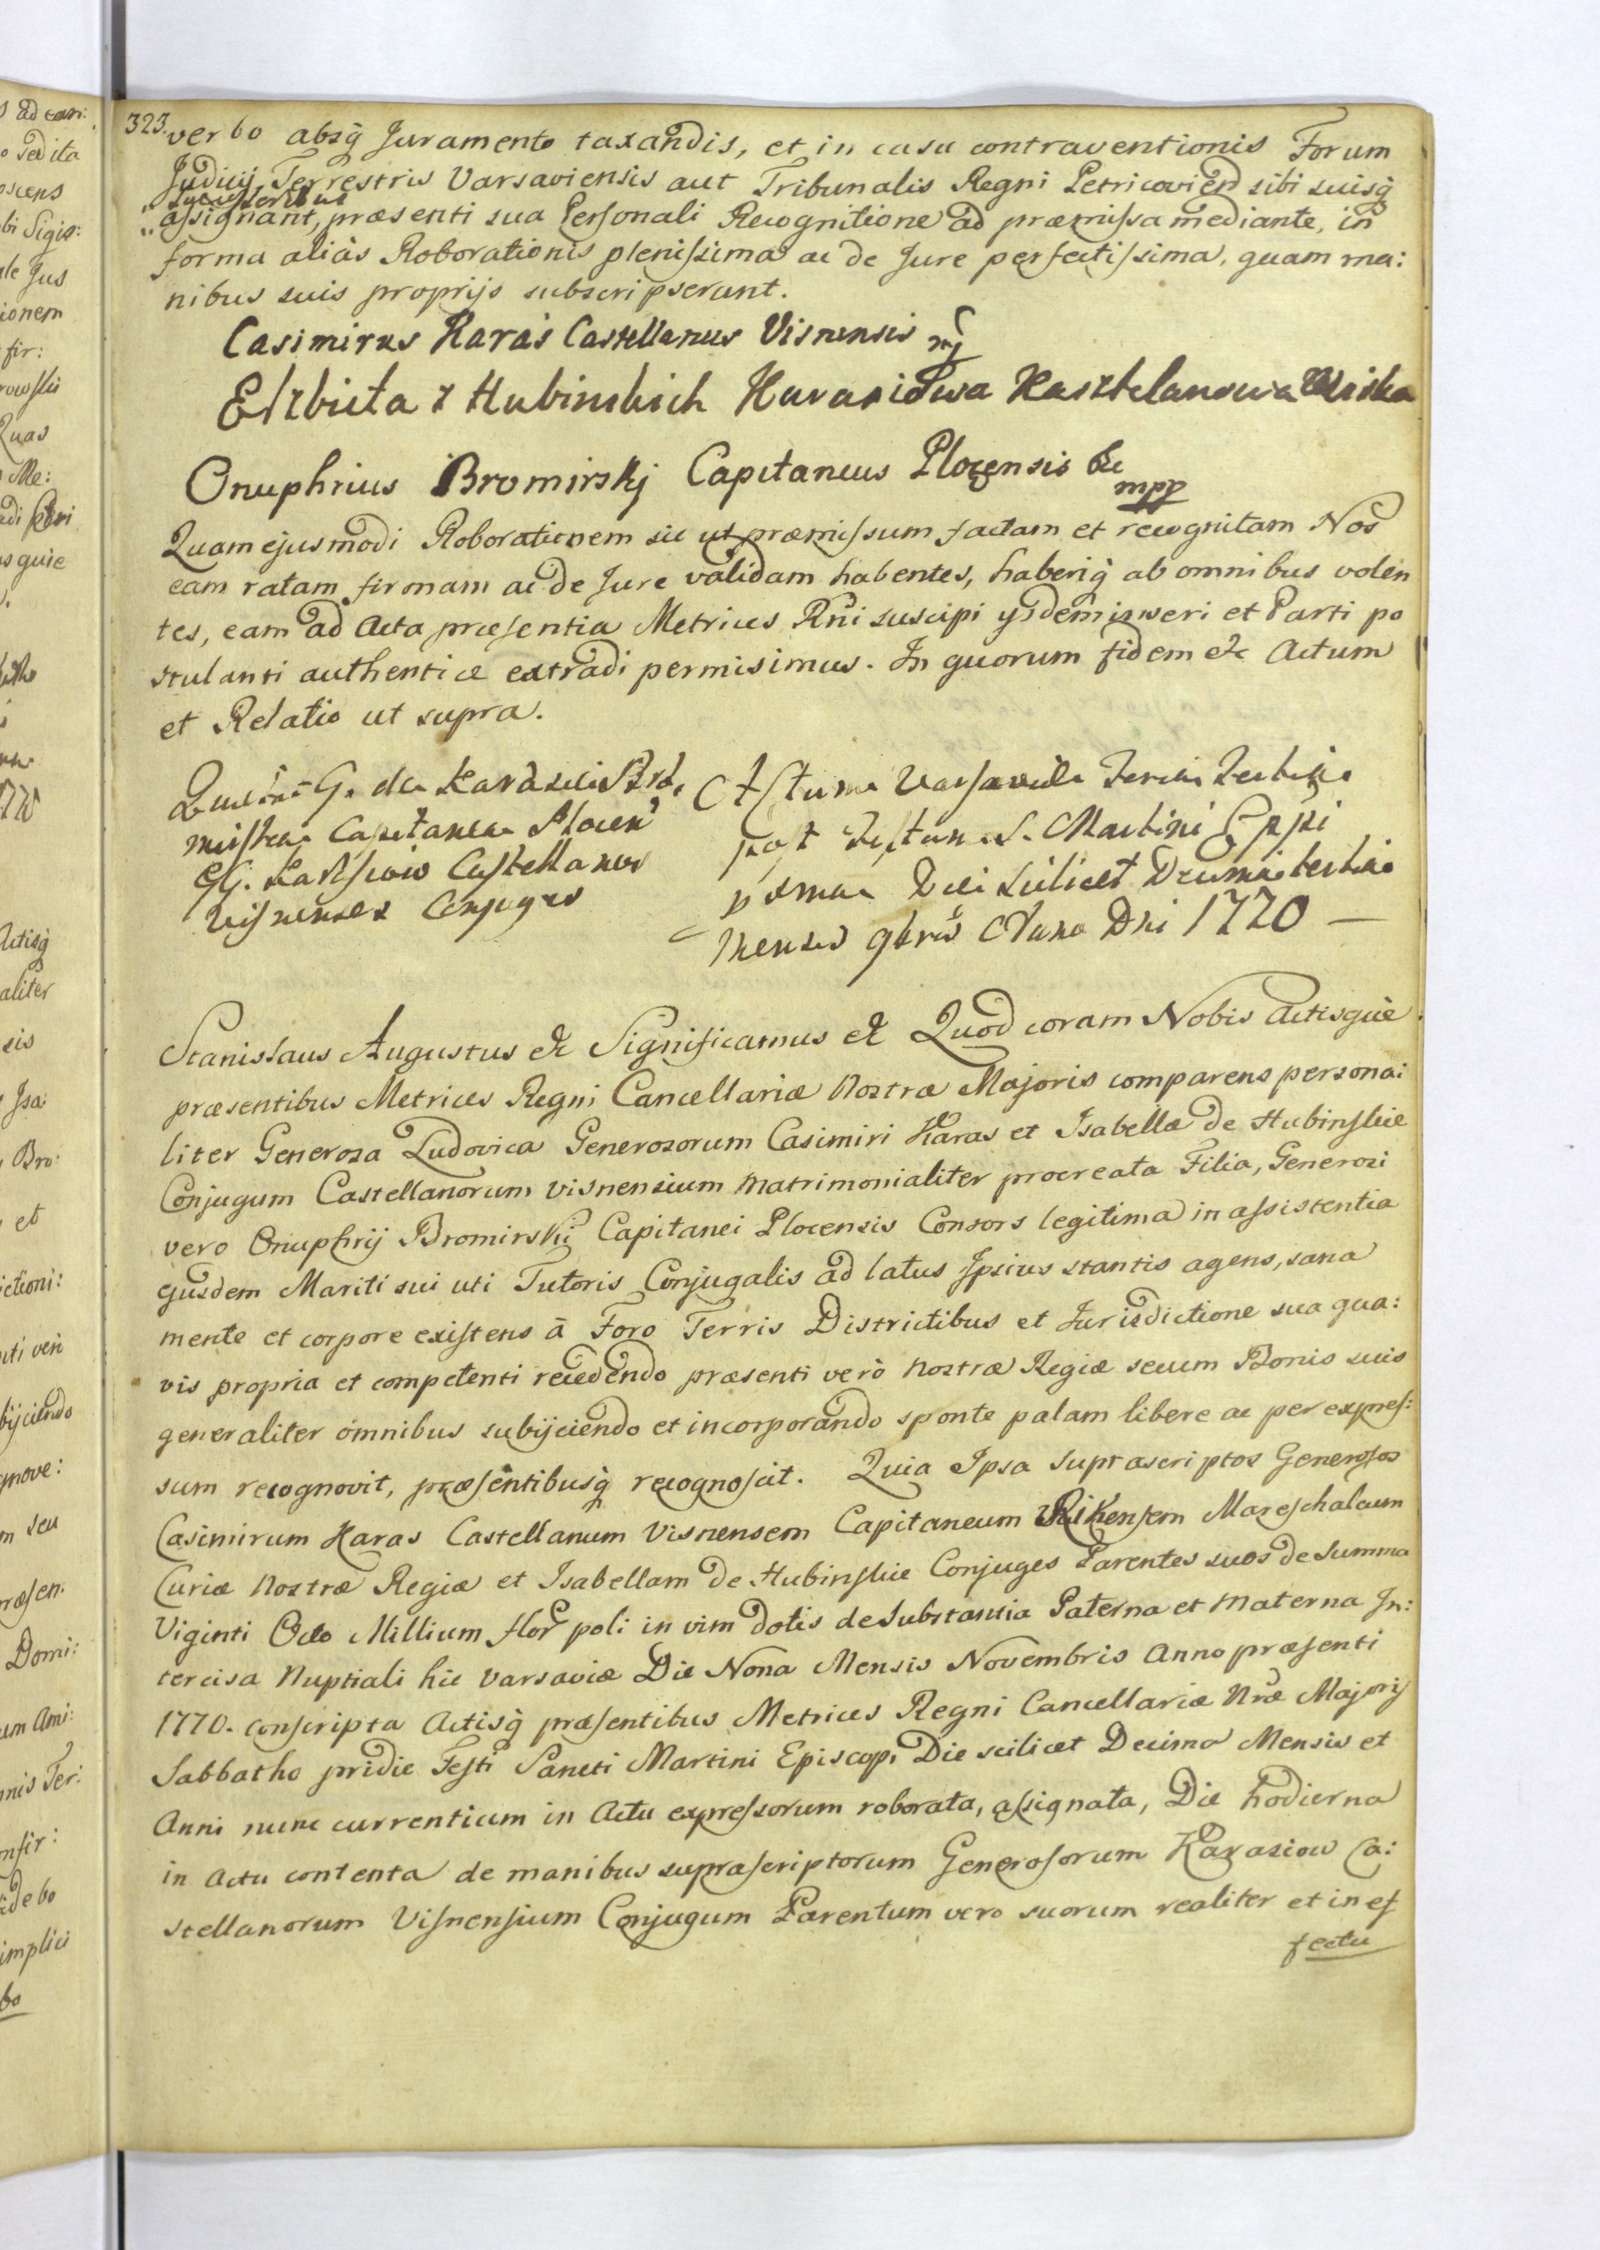 323.
verbo absq̀ Juramento taxandis, et in casu contraventionis Forum
Judicij Terrestris Varsaviensis aut Tribunalis Regni Petricovien̄ sibi suisq̀
Successoribus
assignant, præsenti sua Personali Recognitione ad præmissa mediante, in
forma aliàs Roborationis plenissima ac de Jure perfectissima, quam ma:
nibus suis proprijs subscripserunt.
Casimirus Karaś Castellanus Visnensis mp
Elzbieta z Hubinskich Karasiowa Kasztelanowa Wiska
Onuphrius Bromirskj Capitaneus Plocensis &c
mpp
Quam ejusmodi Roborationem sic ut præmissum factam et recognitam Nos
eam ratam firmam ac de Jure validam habentes, haberiq̀ ab omnibus volen
tes, eam ad Acta præsentia Metrices Rn̄i suscipi ysdem inseri et Parti po
stulanti authentice extradi permisimus. In quorum fidem &c Actum
et Relatio ut supra.
G. de
Capitanea Plocen̄
GG. Castellanos
Visnenses Conjuges
Actum Varsaviæ Feria tertia
post Festum S. Martini Eppi
pxma Die scilicet Decima tertia
Mensis 9bris Anno Dni 1770 —
Stanislaus Augustus &c Significamus &c Quod coram Nobis Actisque
præsentibus Metrices Regni Cancellariæ Nostræ Majoris comparens persona:
liter Generosa Ludovica Generosorum Casimiri Karas et Isabellæ de Hubinskie
Conjugum Castellanorum Visnensium Matrimonialiter procreata Filia, Generosi
vero Onuphrij Bromirskij Capitanei Plocensis Consors legitima in assistentia
ejusdem Mariti sui uti Tutoris Conjugalis ad latus Ipsius stantis agens, sana
mente et corpore existens à Foro Terris Districtibus et Jurisdictione sua qua:
vis propria et competenti recedendo præsenti verò Nostræ Regiæ secum Bonis suis
generaliter omnibus subijciendo et incorporando sponte palam libere ac per expres:
sum recognovit, præsentibusq̀ recognoscit. Quia Ipsa Suprascriptos Generosos
Casimirum Karas Castellanum Visnensem Capitaneum Rikensem Mareschalcum
Curiæ Nostræ Regiæ et Isabellam de Hubinskie Conjuges Parentes suos de Summa
Viginti Octo Millium flor poli in vim dotis de Substantia Paterna et Materna In:
tercisa Nuptiali hic Varsaviæ Die Nona Mensis Novembris Anno præsenti
1770. conscripta Actisq̀ præsentibus Metrices Regni Cancellariæ Nræ Majoris
Sabbatho pridie Festi Sancti Martini Episcopi Die scilicet Decima Mensis et
Anni nunc currentium in Actu expressorum roborata, assignata, Die hodierna
in Actu contenta de manibus suprascriptorum Generosorum Karasiow Ca:
stellanorum Visnensium Conjugum Parentum vero suorum realiter et in ef
fectu